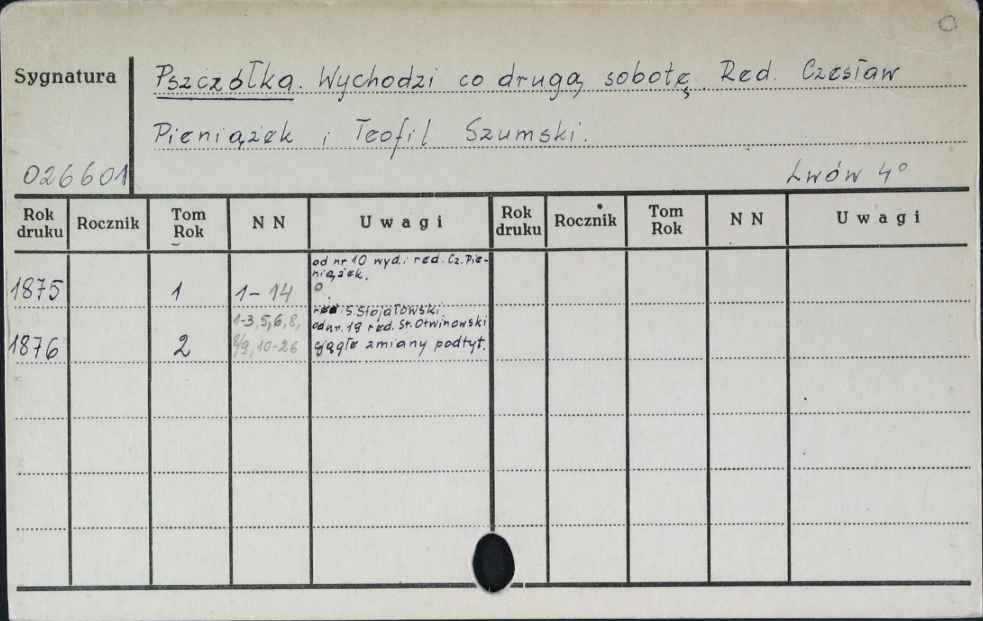 Sygnatura
Pszczółka. Wychodzi co drugą sobotę. Red. Czesław
Pieniążek i Teofil Szumski.
026601
Lwów 4°
Rok druku Rocznik Tom Rok N N Uwagi Rok druku Rocznik Tom Rok N N Uwagi
od nr 10 wyd. i red. Cz. Pie-
niążek.
1875 1 1-14
red. S. Stojałowski
1-3,5,6,8, od nr. 19 red. St. Otwinowski
1876 2 8/9, 10-26 ciągłe zmiany podtyt.